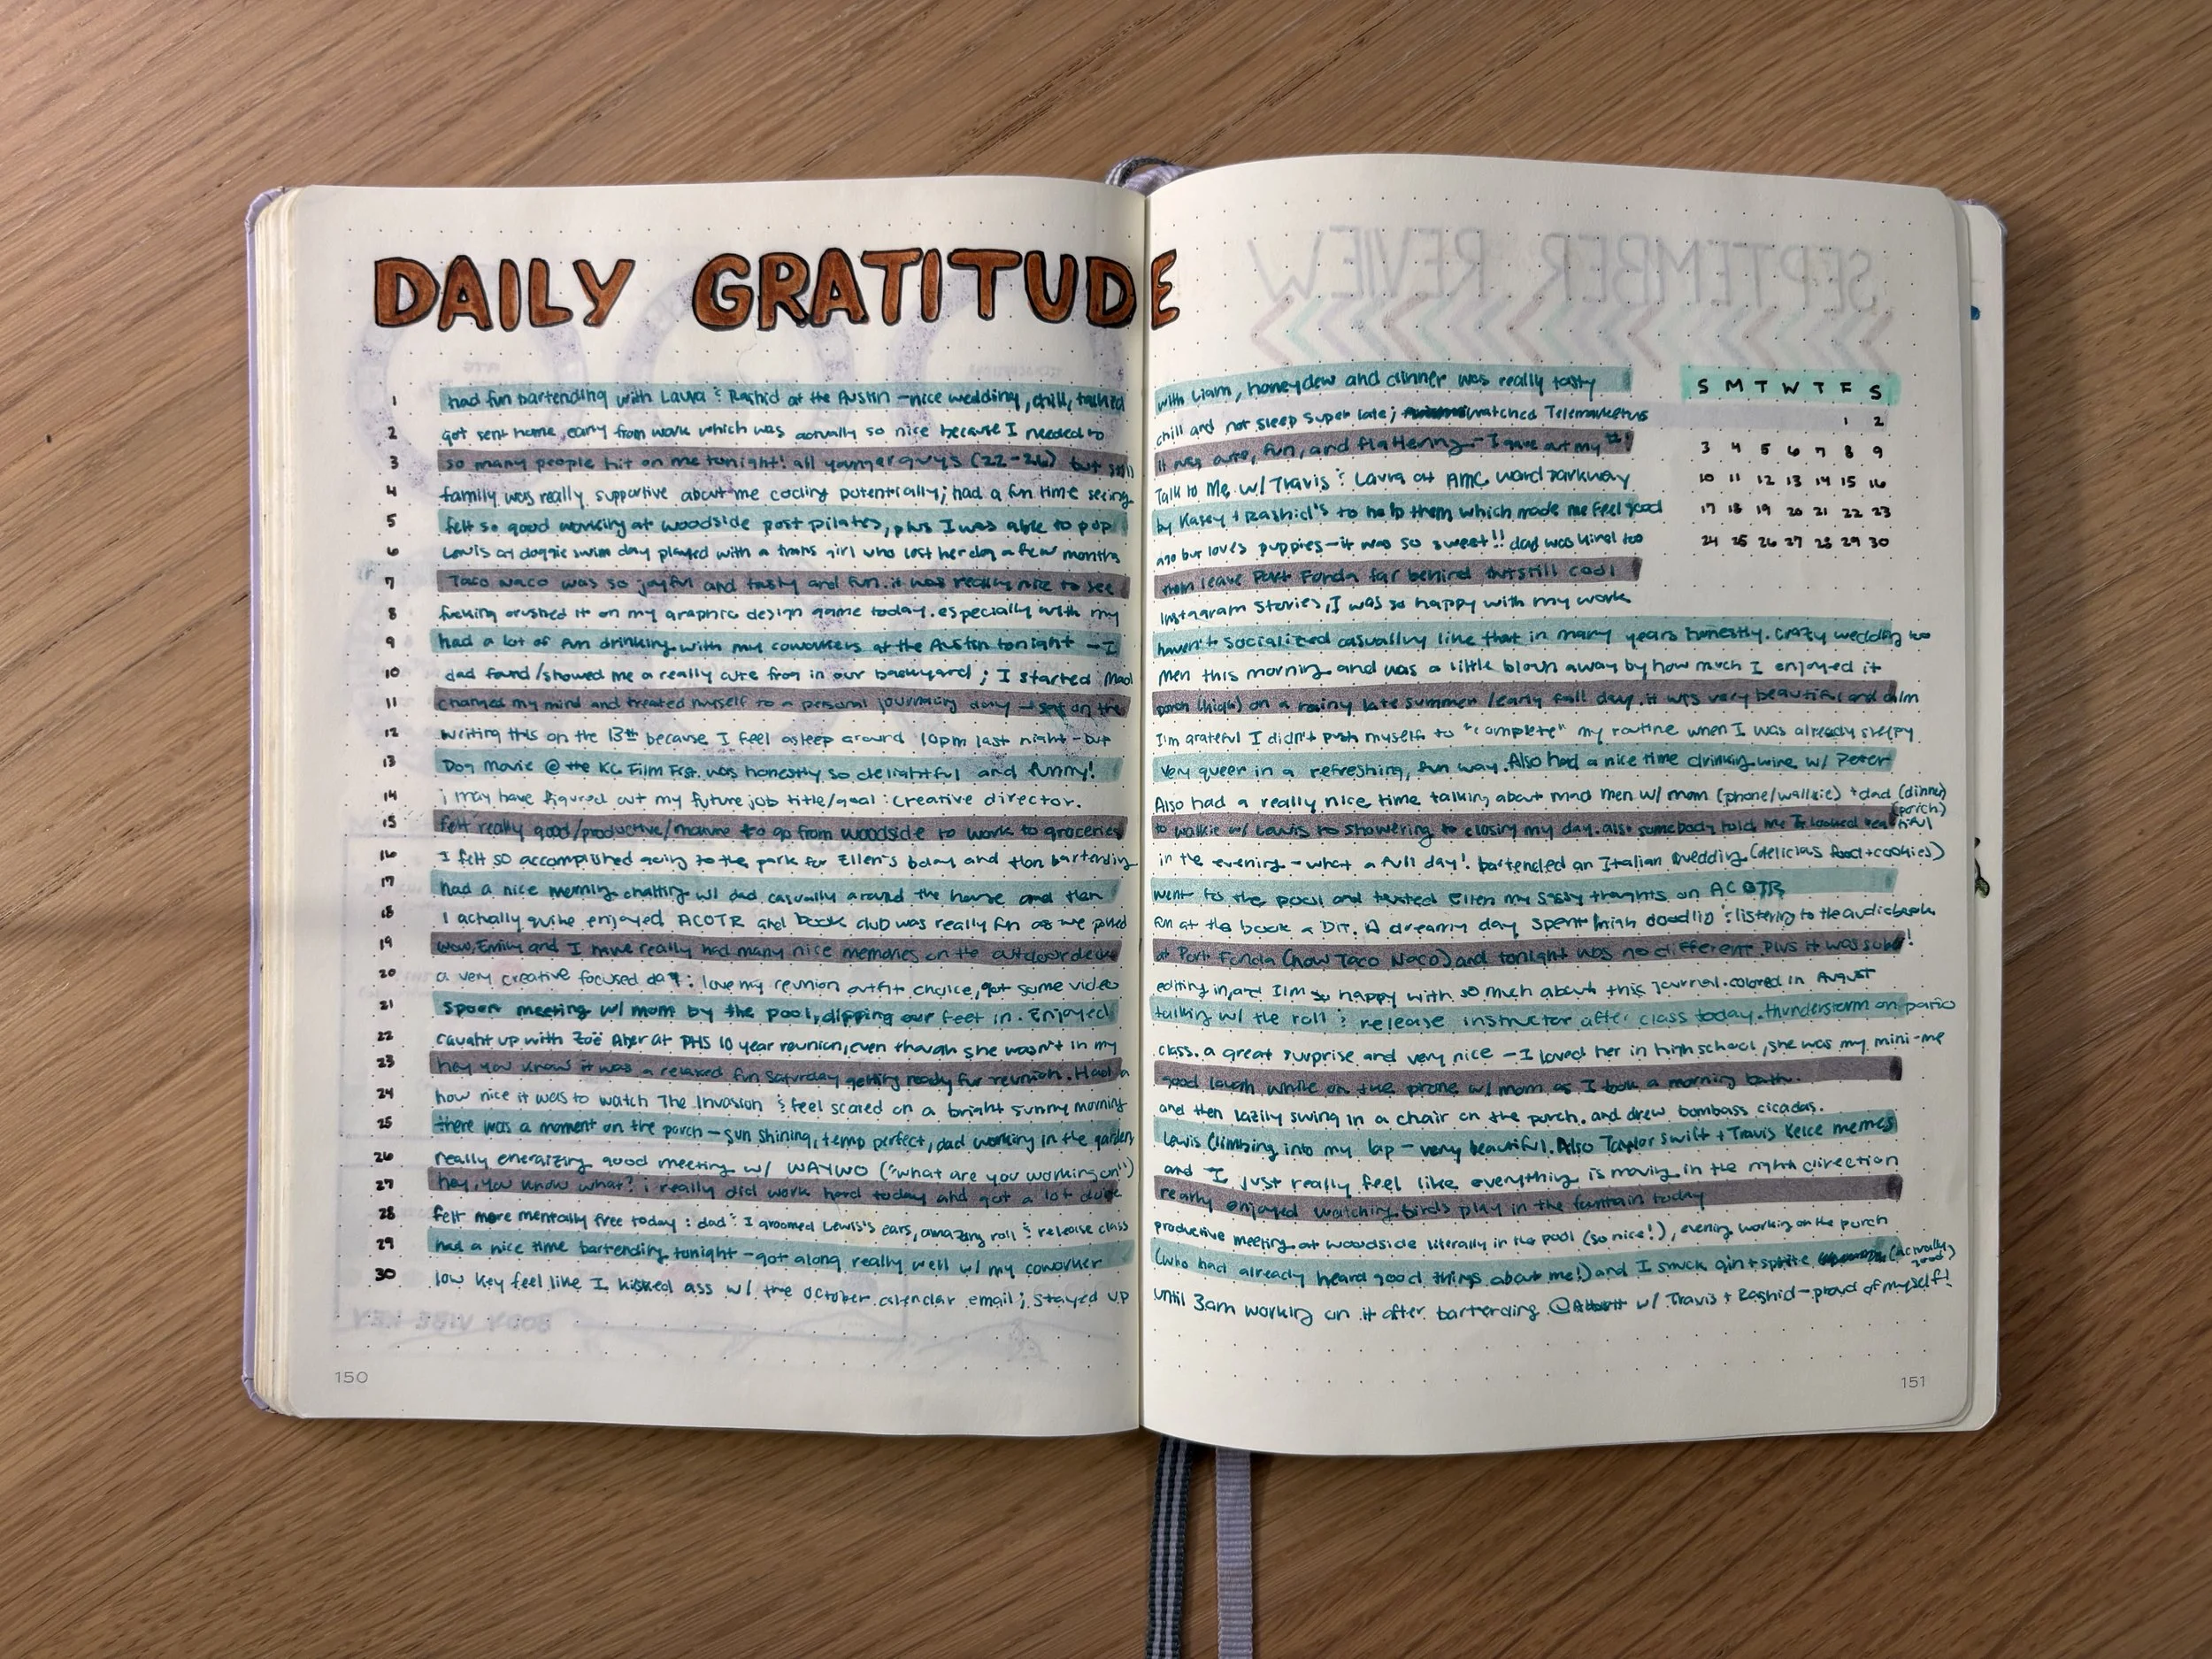 DAILY GRATITUDE
1 had fun bartending with Laura & Rashid at the Austin - nice wedding, chill, talked with Liam, honeydew and dinner was really tasty
2 got sent home early from work which was actually so nice because I needed to chill and not sleep super late; watched Telemarketers
3 so many people hit on me tonight! all younger guys (22-26) but still it was cute, fun, and flattering - I gave out my #!
4 family was really supportive about me coding potentially; had a fun time seeing Talk to Me w/ Travis & Laura at AMC Ward Parkway
5 felt so good working at woodside post pilates, plus I was able to pop by Kasey + Rashid's to help them which made me feel good
6 Lewis at doggie swim day played with a trans girl who lost her dog a few months ago but loves puppies - it was so sweet!! dad was kind too
7 Taco Naco was so joyful and tasty and fun. it was really nice to see them leave Port Fonda far behind but still cool
8 fucking crushed it on my graphic design game today. especially with my Instagram stories, I was so happy with my work
9 had a lot of fun drinking with my coworkers at the Austin tonight - I haven't socialized casually like that in many years honestly. crazy wedding too
10 dad found/showed me a really cute frog in our backyard; I started Mad Men this morning and was a little blown away by how much I enjoyed it
11 changed my mind and treated myself to a personal journaling day - sat on the porch (high) on a rainy late summer/early fall day. it was very beautiful and calm
12 writing this on the 13th because I feel asleep around 10pm last night - but I'm grateful I didn't push myself to "complete" my routine when I was already sleepy
13 Dog Movie @ the KC Film Fest. was honestly so delightful and funny! Very queer in a refreshing, fun way. Also had a nice time drinking wine w/ Peter
14 i may have figured out my future job title/goal: creative director. Also had a really nice time talking about mad men w/ mom (phone/walkie) + dad (dinner) (porch)
15 felt really good/productive/mature to go from woodside to work to groceries to walkie w/ Lewis to showering to closing my day. also somebody told me I looked beautiful
16 I felt so accomplished going to the park for Ellen's bday and then bartending in the evening - what a full day! bartended an Italian wedding (delicious food + cookies)
17 had a nice morning chatting w/ dad casually around the house and then went to the pool and texted Ellen my sassy thoughts on ACOTR
18 I actually quite enjoyed ACOTR and book club was really fun as we poked fun at the book a bit. A dreamy day spent high doodling & listening to the audiobook
19 wow, Emily and I have really had many nice memories on the outdoor deck at Port Fonda (now Taco Naco) and tonight was no different. Plus it was sober!
20 a very creative focused day: love my reunion outfit choice, got some video editing in, and I'm so happy with so much about this journal. colored in August
21 spoon meeting w/ mom by the pool, dipping our feet in. Enjoyed talking w/ the roll & release instructor after class today. thunderstorm on patio
22 caught up with Zoë Aber at PHS 10 year reunion, even though she wasn't in my class. a great surprise and very nice - I loved her in high school, she was my mini-me
23 hey you know it was a relaxed fun saturday getting ready for reunion. Had a good laugh while on the phone w/ mom as I took a morning bath.
24 how nice it was to watch The Invasion & feel scared on a bright sunny morning and then lazily swing in a chair on the porch. and drew bombass cicadas.
25 there was a moment on the porch - sun shining, temp perfect, dad working in the garden, Lewis climbing into my lap - very beautiful. Also Taylor Swift + Travis Kelce memes
26 really energizing good meeting w/ WAYWO ("what are you working on") and I just really feel like everything is moving in the right direction
27 hey, you know what? i really did work hard today and got a lot done really enjoyed watching birds play in the fountain today
28 felt more mentally free today: dad & I groomed Lewis's ears, amazing roll & release class productive meeting at woodside literally in the pool (so nice!), evening working on the porch
29 had a nice time bartending tonight - got along really well w/ my coworker (who had already heard good things about me!) and I snuck gin + sprite (actually good)
30 low key feel like I kicked ass w/ the October calendar email; stayed up until 3am working on it after bartending @ Abbott w/ Travis + Rashid - proud of myself!
S M T W T F S
1 2
3 4 5 6 7 8 9
10 11 12 13 14 15 16
17 18 19 20 21 22 23
24 25 26 27 28 29 30
SEPTEMBER REVIEW
BODY VIBE KEY
150
151